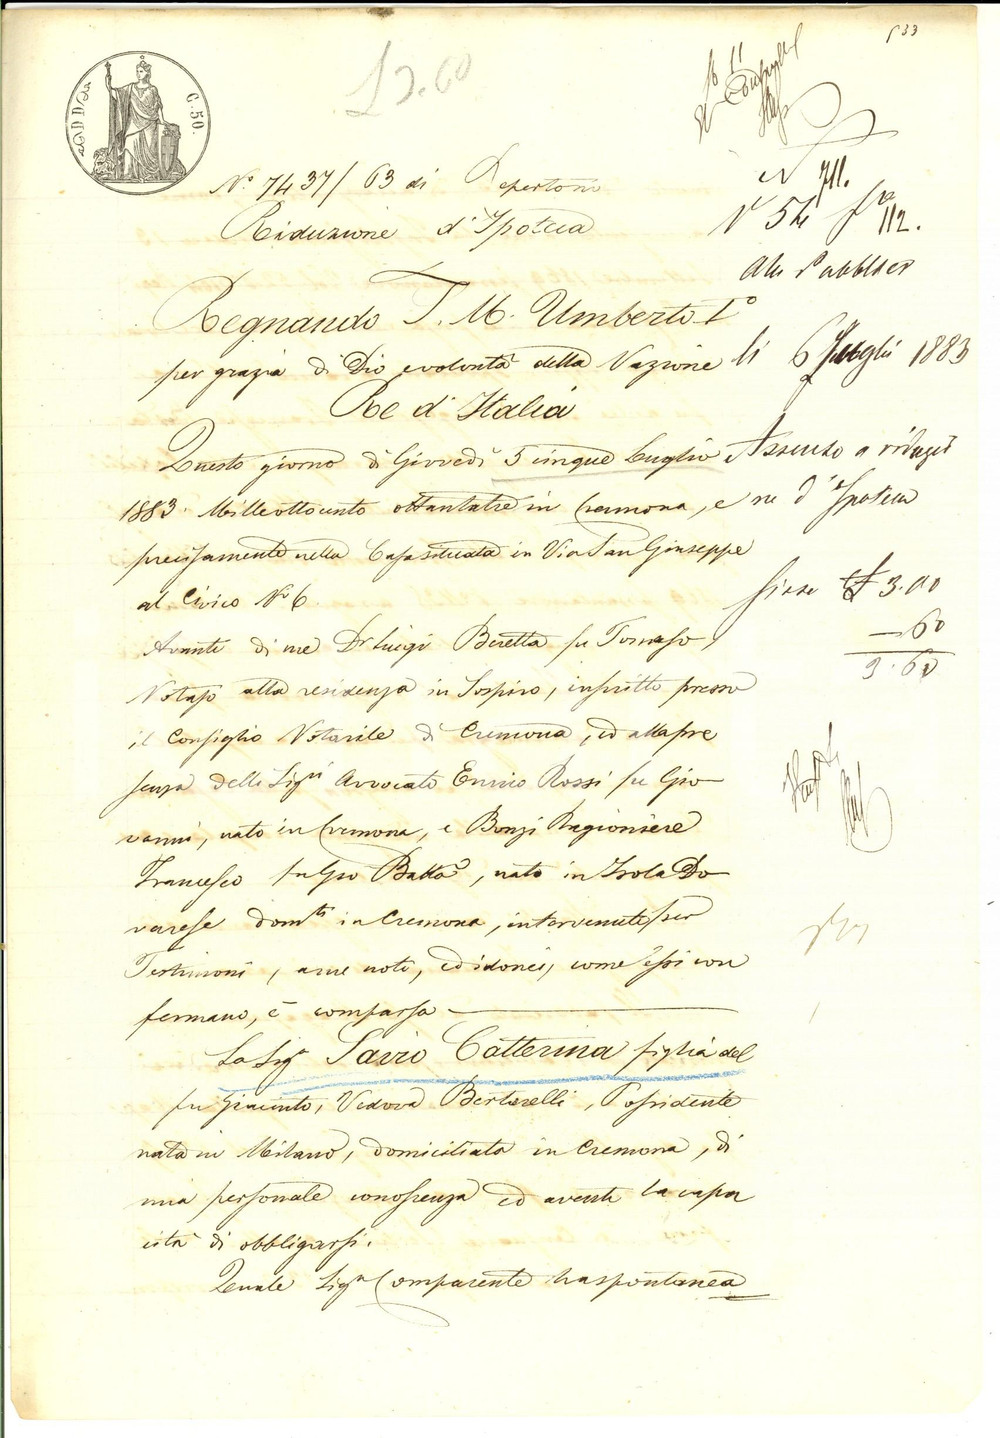 C. 50.
£ 3.60
N.° 7437/63 di Repertorio
Riduzione d'Ipoteca
Regnando S. M. Umberto I°
per grazia di Dio e volontà della Nazione
Re d'Italia
Questo giorno di Giovedì 5 cinque Luglio
1883. Milleottocento ottantatre in Cremona, e
precisamente nella Casa situata in Via San Giuseppe
al Civico N° 6.
Avanti di me Dr Luigi Beretta fu Tomaso,
Notajo alla residenza in Sospiro, inscritto presso
il Consiglio Notarile di Cremona, ed alla pre
senza delli Sigri Avvocato Ennio Rossi fu Gio
vanni, nato in Cremona, e Bonzi Ragioniere
Francesco fu Gio Batta, nato in Isola Do
varese domti in Cremona, intervenuti per
Testimoni, a me noti, ed idonei, come essi con
fermano, è comparsa
La Sigra Savio Catterina figlia del
fu Giacinto, Vedova Bertarelli, Possidente
nata in Milano, domiciliata in Cremona, di
mia personale conoscenza ed avente la capa
cità di obbligarsi.
Quale Sigra Comparente ha spontanea
711.
N° 54 112.
li 6 Luglio 1883
Assenso a riduzio
ne d'Ipoteca
£ 3.00
— 60
3.60